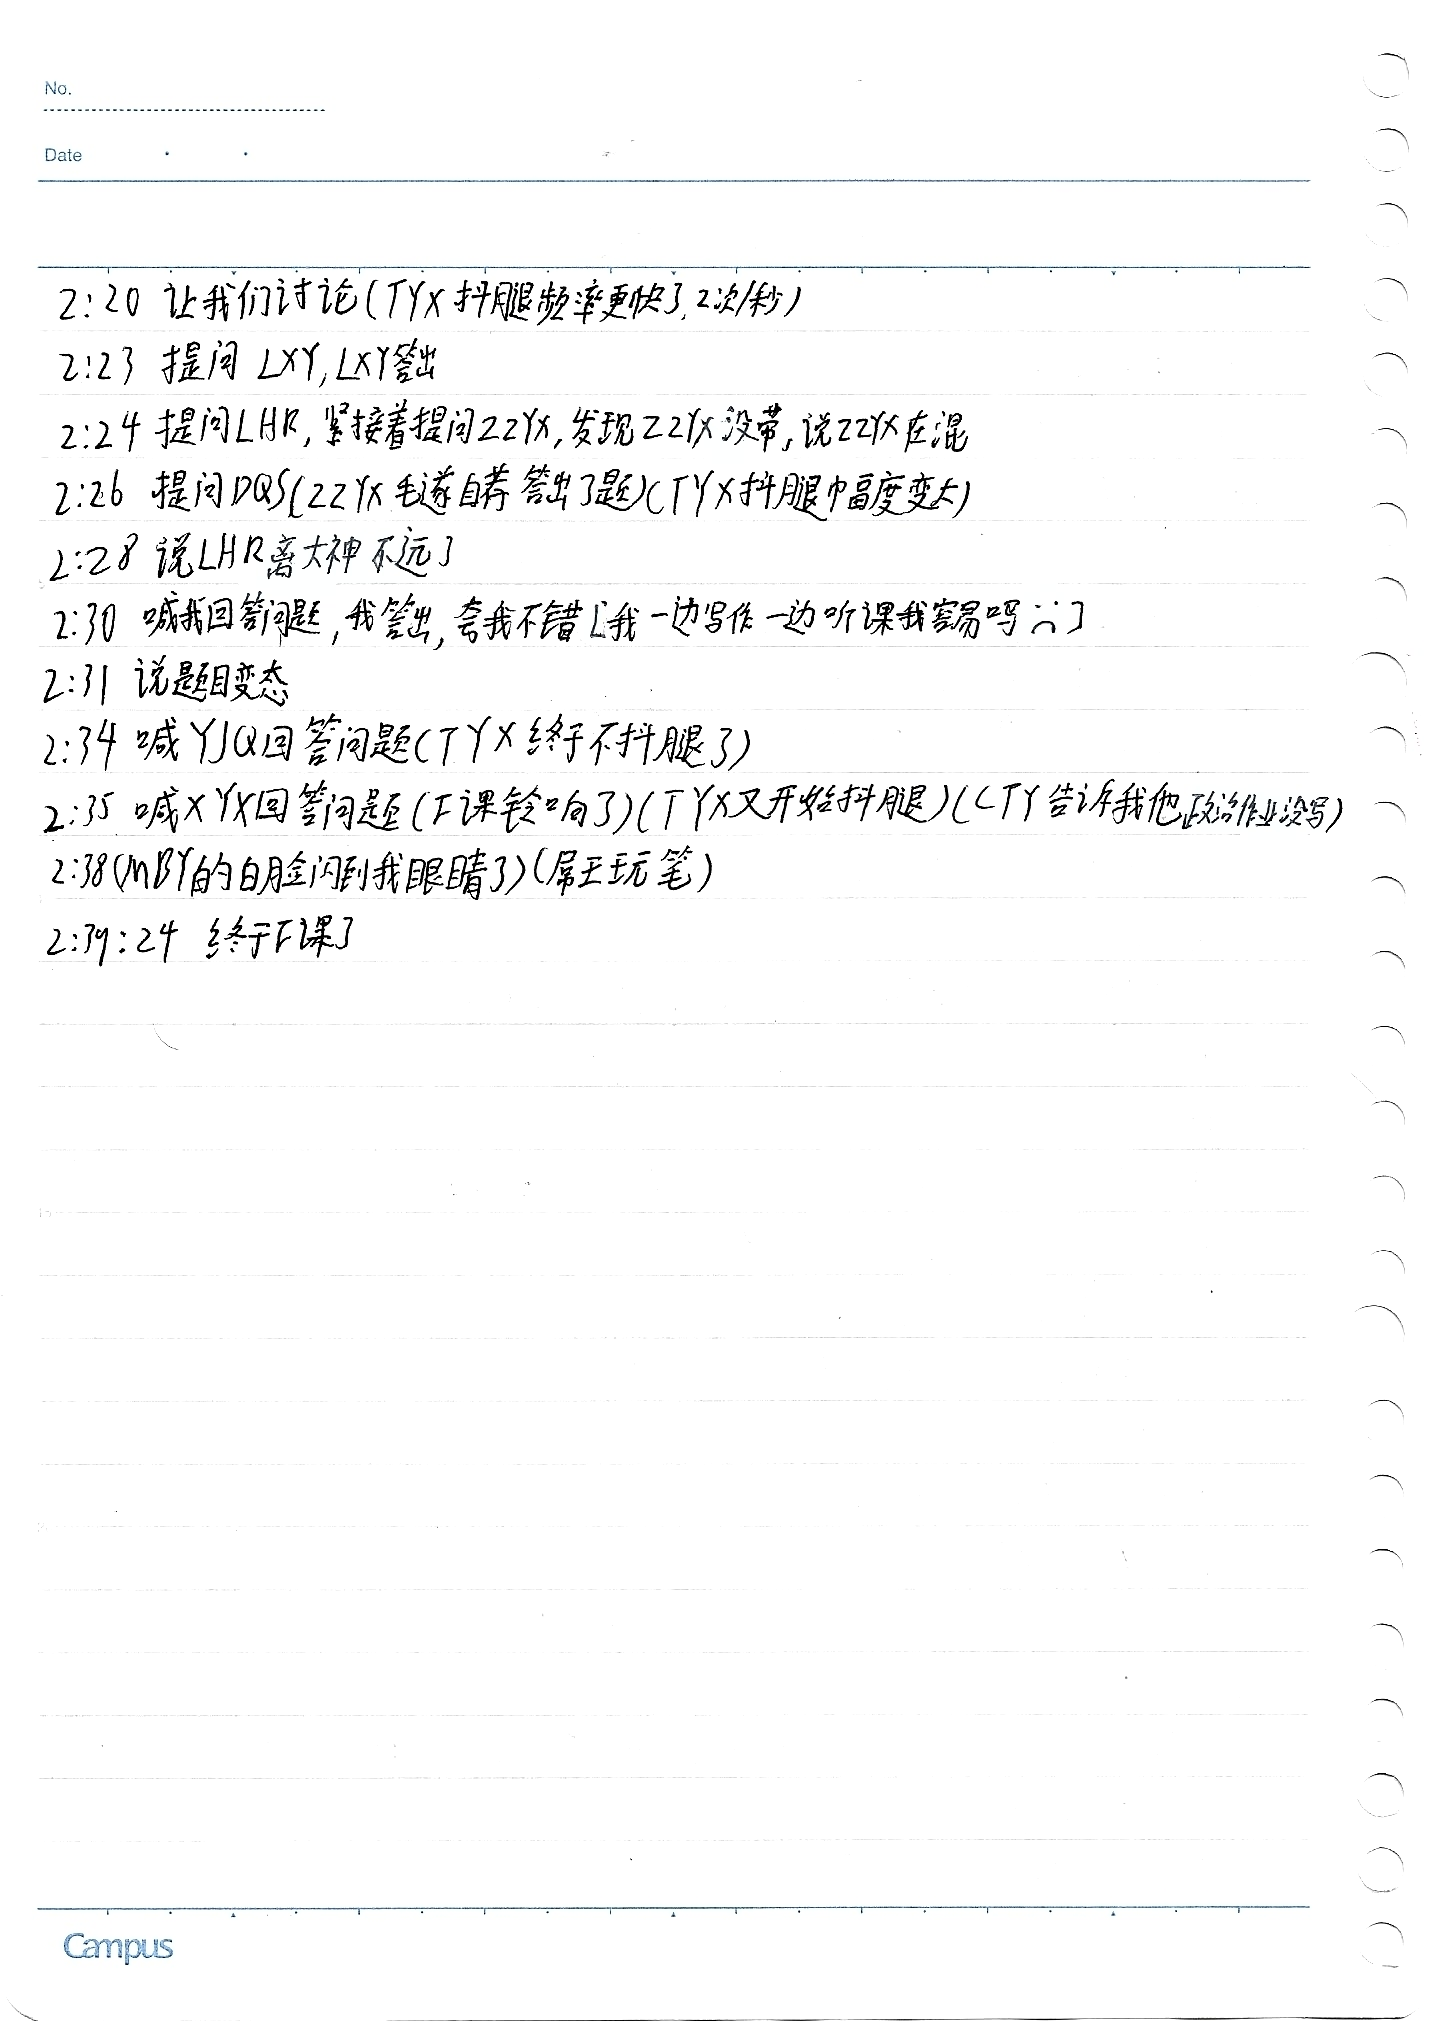 No.
Date
2:20 让我们讨论(TYX抖腿频率更快了,2次/秒)
2:23 提问 LXY,LXY答出
2:24 提问LHR,紧接着提问ZZYX,发现ZZYX没带,说ZZYX在混
2:26 提问DQS(ZZYX毛遂自荐 答出了题)(TYX抖腿幅度变大)
2:28 说LHR离大神不远了
2:30 喊我回答问题,我答出,夸我不错[我一边写作一边听课我容易吗:(]
2:31 说题目变态
2:34 喊YJQ回答问题(TYX终于不抖腿了)
2:35 喊XYX回答问题(下课铃响了)(TYX又开始抖腿)(CTY告诉我他政治作业没写)
2:38(MBY的白脸闪到我眼睛了)(屌王玩笔)
2:39:24 终于下课了
Campus